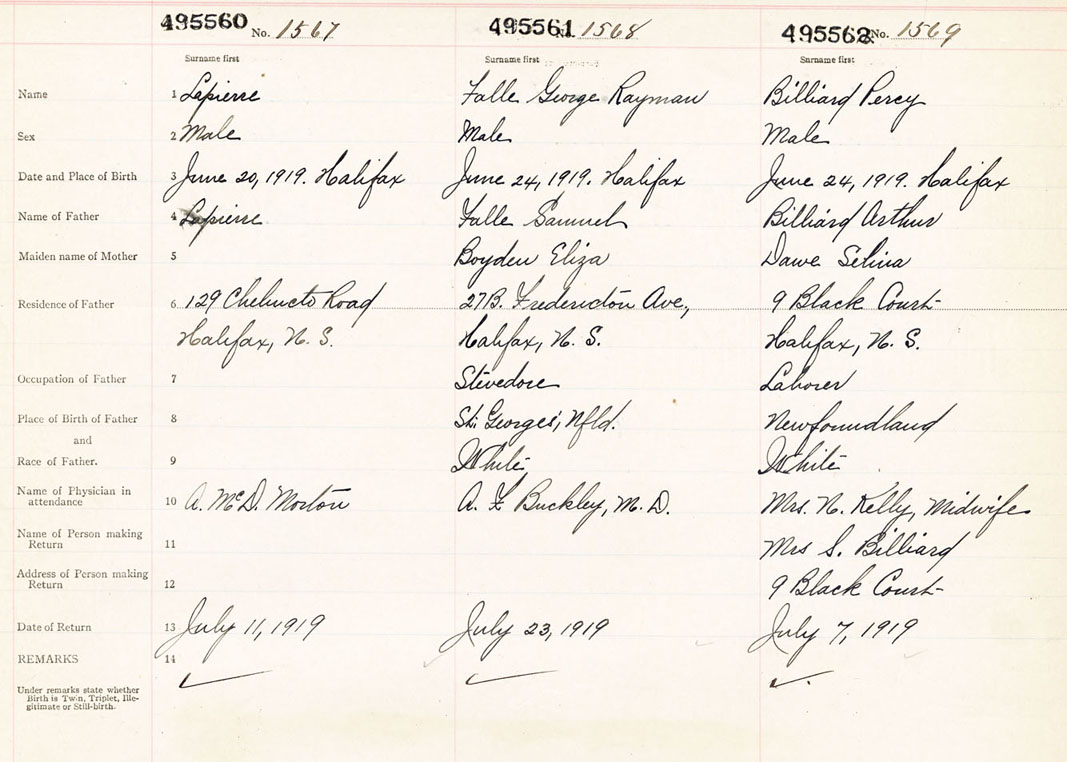 495560 No. 1567 495561 No. 1568 495562 No. 1569
Surname first Surname first Surname first
Name 1 Lapierre Falle George Rayman Billiard Percy
Sex 2 Male Male Male
Date and Place of Birth 3 June 20, 1919. Halifax June 24, 1919. Halifax June 24, 1919. Halifax
Name of Father 4 Lapierre Falle Samuel Billiard Arthur
Maiden name of Mother 5 Boyden Eliza Dawe Selina
Residence of Father 6 129 Chebucto Road 27B. Fredericton Ave., 9 Black Court
Halifax, N. S. Halifax, N. S. Halifax, N. S.
Occupation of Father 7 Stevedore Laborer
Place of Birth of Father 8 St. Georges, Nfld. Newfoundland
and
Race of Father. 9 White White
Name of Physician in
attendance 10 A. McD. Morton A. F Buckley, M. D. Mrs. N. Kelly, Midwife
Name of Person making
Return 11 Mrs S. Billiard
Address of Person making
Return 12 9 Black Court
Date of Return 13 July 11, 1919 July 23, 1919 July 7, 1919
REMARKS 14
Under remarks state whether
Birth is Twin, Triplet, Ille-
gitimate or Still-birth.